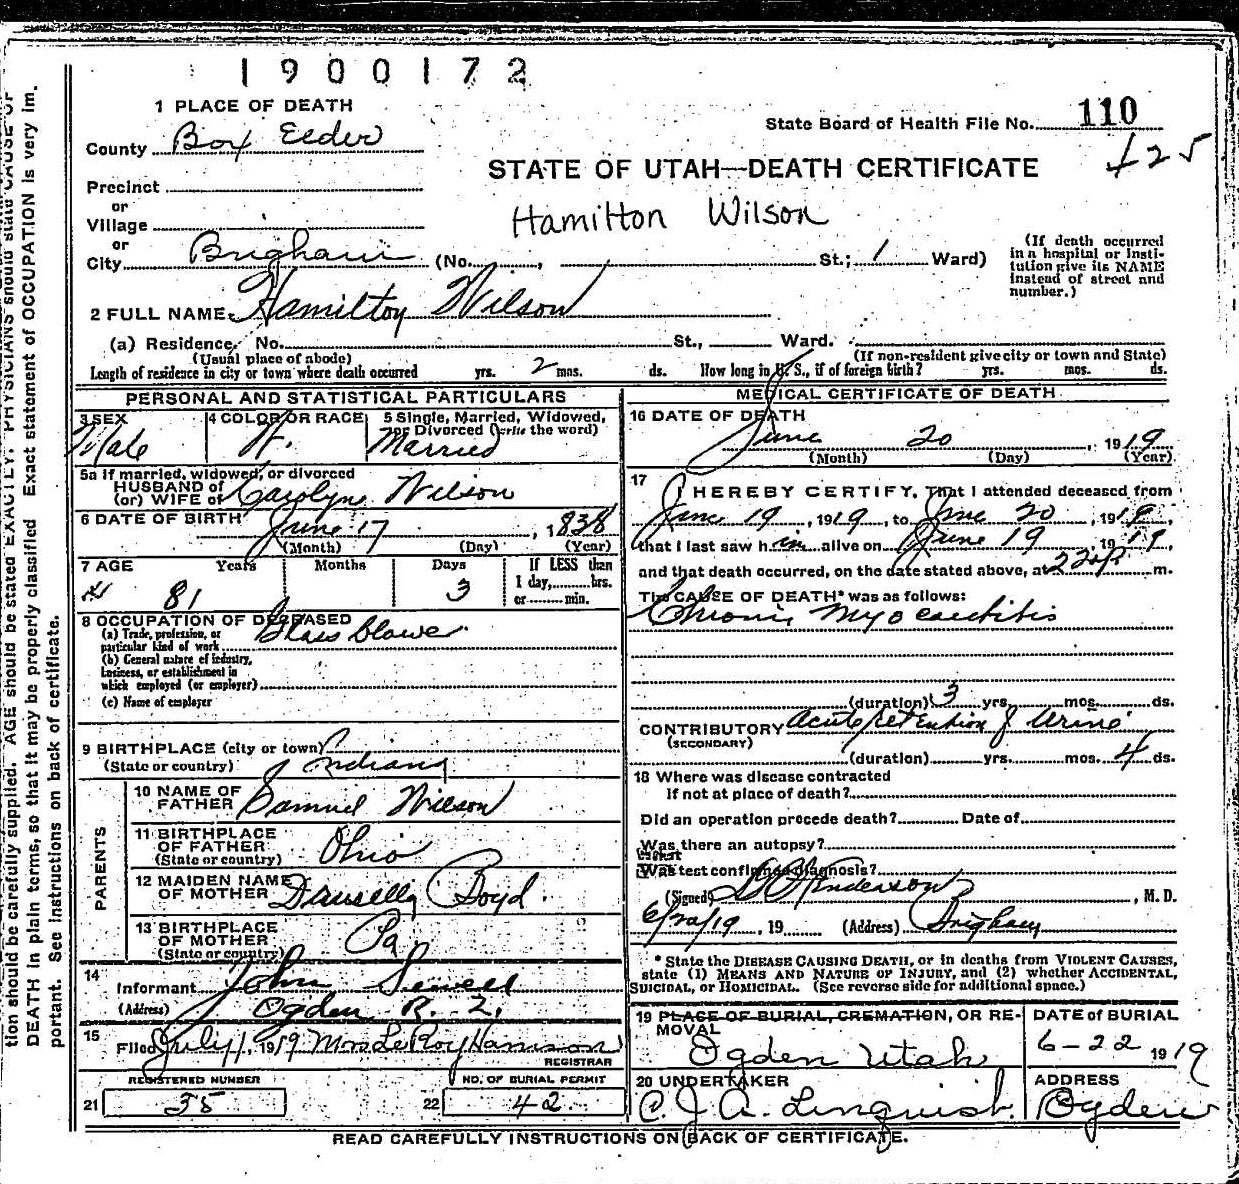 1900172
1 PLACE OF DEATH
State Board of Health File No. 110
125
County Box Elder
STATE OF UTAH—DEATH CERTIFICATE
Precinct
or
Hamilton Wilson
Village
or
City Brigham (No. , St.; 1 Ward)
(If death occurred in a hospital or institution give its NAME instead of street and number.)
2 FULL NAME Hamilton Wilson
(a) Residence. No. St., Ward.
(Usual place of abode) (If non-resident give city or town and State)
Length of residence in city or town where death occurred yrs. 2 mos. ds. How long in U. S., if of foreign birth? yrs. mos. ds.
PERSONAL AND STATISTICAL PARTICULARS
3 SEX
Male
4 COLOR OR RACE
W.
5 Single, Married, Widowed,
or Divorced (write the word)
Married
5a If married, widowed, or divorced
HUSBAND of
(or) WIFE of Carolyne Wilson
6 DATE OF BIRTH June 17, 1838
(Month) (Day) (Year)
7 AGE Years Months Days If LESS than
1 day,.....hrs.
or.....min.
81 3
8 OCCUPATION OF DECEASED
(a) Trade, profession, or
particular kind of work Glass blower
(b) General nature of industry,
business, or establishment in
which employed (or employer)
(c) Name of employer
9 BIRTHPLACE (city or town) ?
(State or country) Indiana
PARENTS
10 NAME OF
FATHER Samuel Wilson
11 BIRTHPLACE
OF FATHER Ohio
(State or country)
12 MAIDEN NAME
OF MOTHER Drusella Boyd
13 BIRTHPLACE
OF MOTHER Pa
(State or country)
14
Informant John Sewell
(Address) Ogden R. 2.
15
Filed July 1, 1919 Mrs LeRoy Harrison
REGISTRAR
REGISTERED NUMBER
21 35
NO. OF BURIAL PERMIT
22 42
MEDICAL CERTIFICATE OF DEATH
16 DATE OF DEATH
June 20, 1919
(Month) (Day) (Year)
17
I HEREBY CERTIFY, That I attended deceased from
June 19, 1919, to June 20, 1919,
that I last saw him alive on June 19 1919,
and that death occurred, on the date stated above, at m.
The CAUSE OF DEATH* was as follows:
Chronic Myocarditis
(duration) 3 yrs. mos. ds.
CONTRIBUTORY Acute retention of Urine
(SECONDARY)
(duration) yrs. mos. 4 ds.
18 Where was disease contracted
If not at place of death?
Did an operation precede death? Date of
Was there an autopsy?
What
Was test confirmed diagnosis?
(Signed) Anderson, M. D.
6/20/19, 19 (Address) Brigham
* State the DISEASE CAUSING DEATH, or in deaths from VIOLENT CAUSES,
state (1) MEANS AND NATURE OF INJURY, and (2) whether ACCIDENTAL,
SUICIDAL, or HOMICIDAL. (See reverse side for additional space.)
19 PLACE OF BURIAL, CREMATION, OR RE-
MOVAL
Ogden Utah
DATE of BURIAL
6-22 1919
20 UNDERTAKER
C. J. A. Linquist.
ADDRESS
Ogden
READ CAREFULLY INSTRUCTIONS ON BACK OF CERTIFICATE.
tion should be carefully supplied. AGE should be stated EXACTLY. PHYSICIANS should state CAUSE OF
DEATH in plain terms, so that it may be properly classified. Exact statement of OCCUPATION is very im-
portant. See instructions on back of certificate.